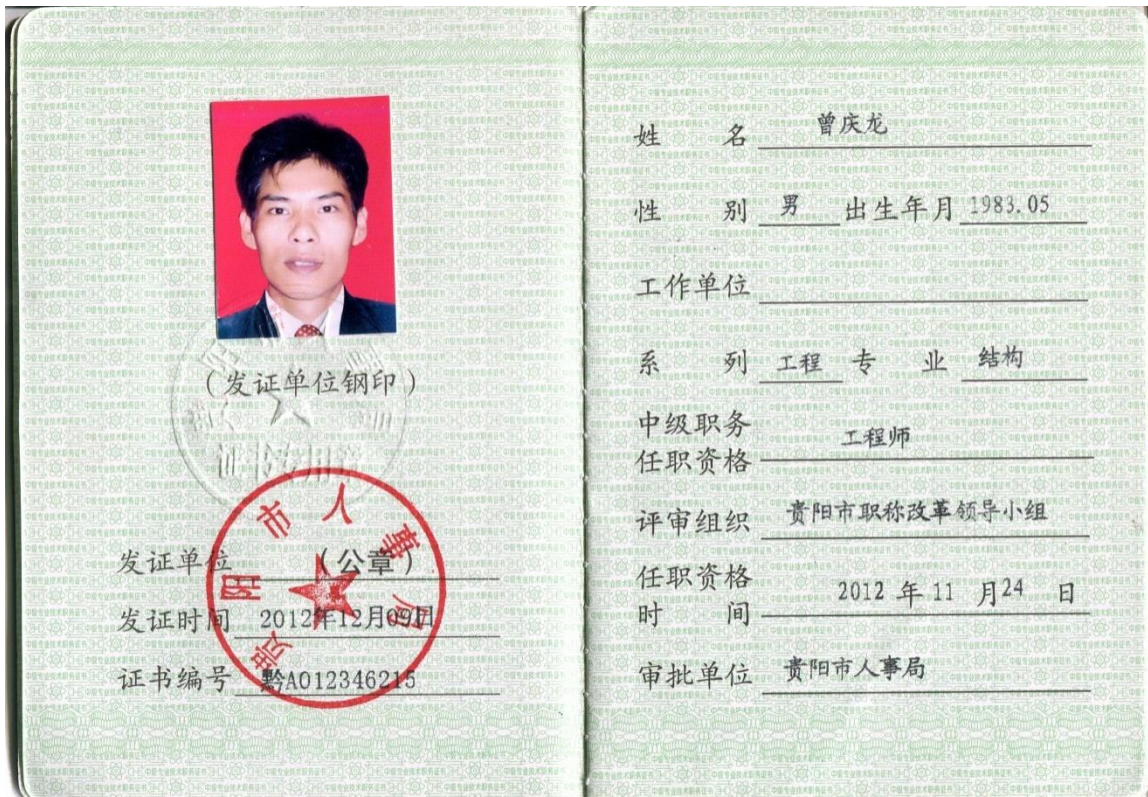 （发证单位钢印）
证书专用章
贵阳市人事局
发证单位 （公章）
发证时间 2012年12月09日
证书编号 黔A012346215
姓 名 曾庆龙
性 别 男 出生年月 1983.05
工作单位
系 列 工程 专 业 结构
中级职务
任职资格 工程师
评审组织 贵阳市职称改革领导小组
任职资格
时 间 2012 年 11 月 24 日
审批单位 贵阳市人事局